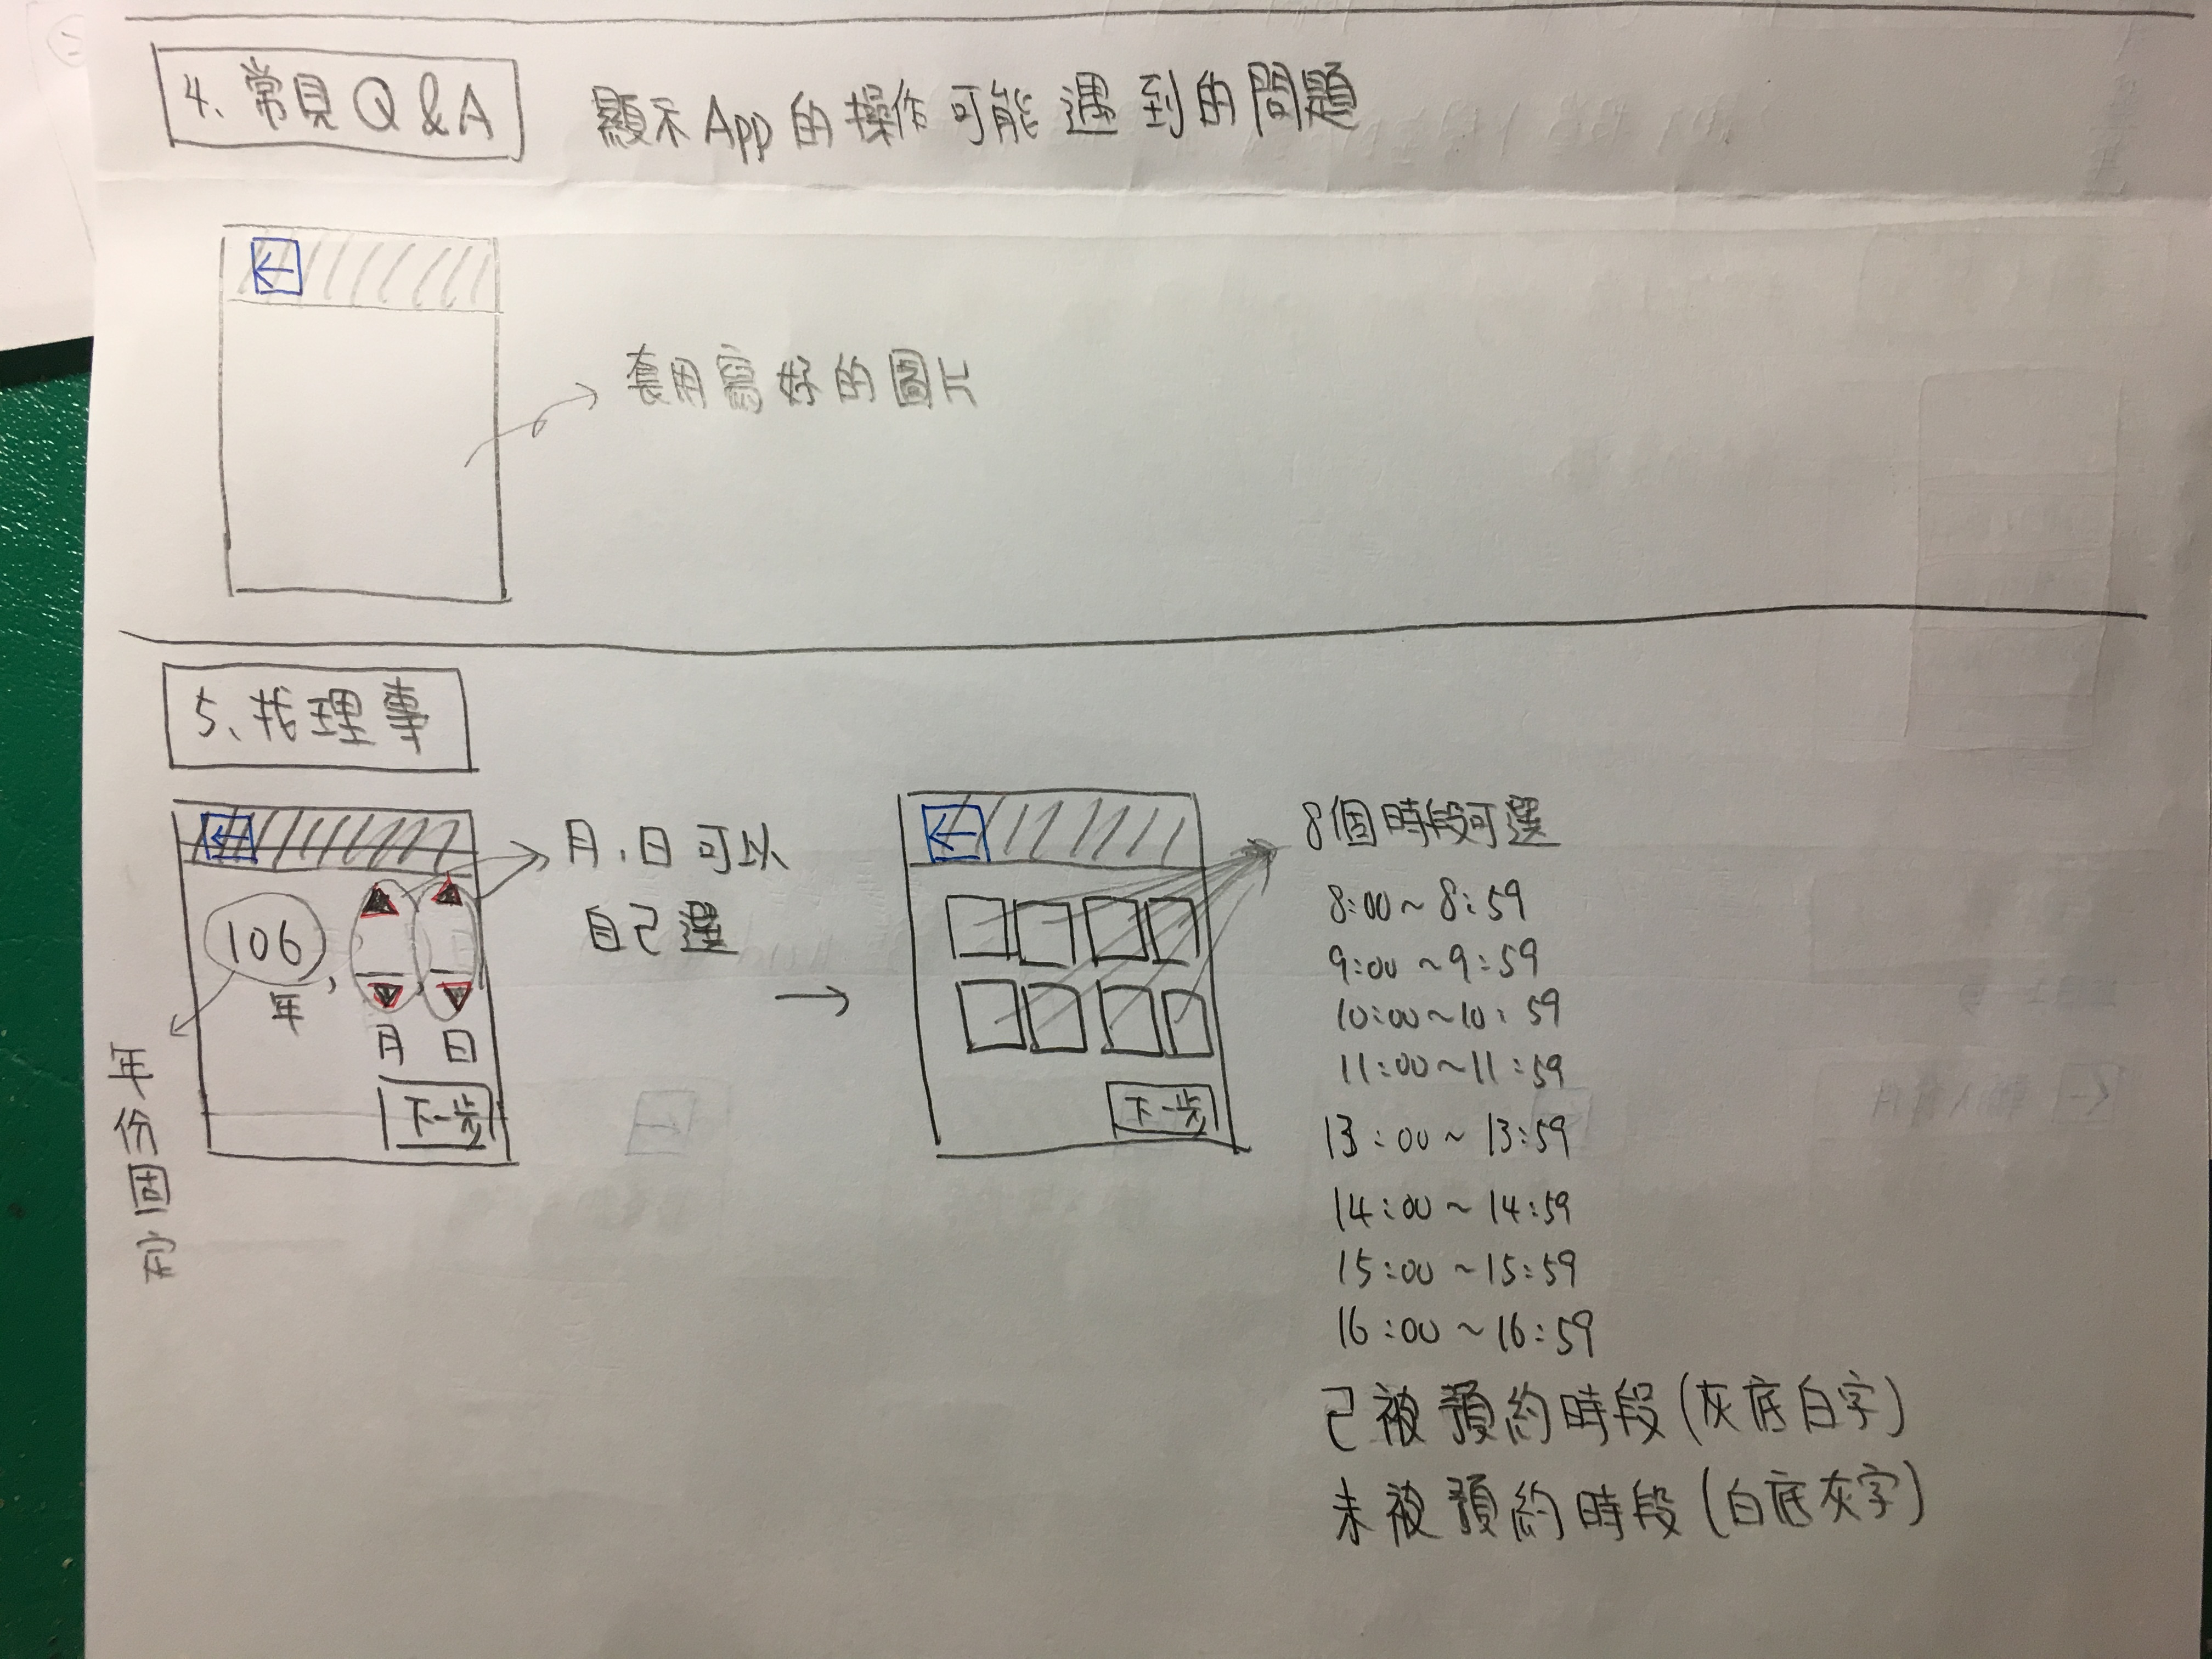 4、常見Q&A
顯示App的操作可能遇到的問題
←
套用寫好的圖片
5、找理事
←
106
年,
月 日
下一步
月、日可以
自己選
年份固定
→
←
下一步
8個時段可選
8:00~8:59
9:00~9:59
10:00~10:59
11:00~11:59
13:00~13:59
14:00~14:59
15:00~15:59
16:00~16:59
已被預約時段(灰底白字)
未被預約時段(白底灰字)